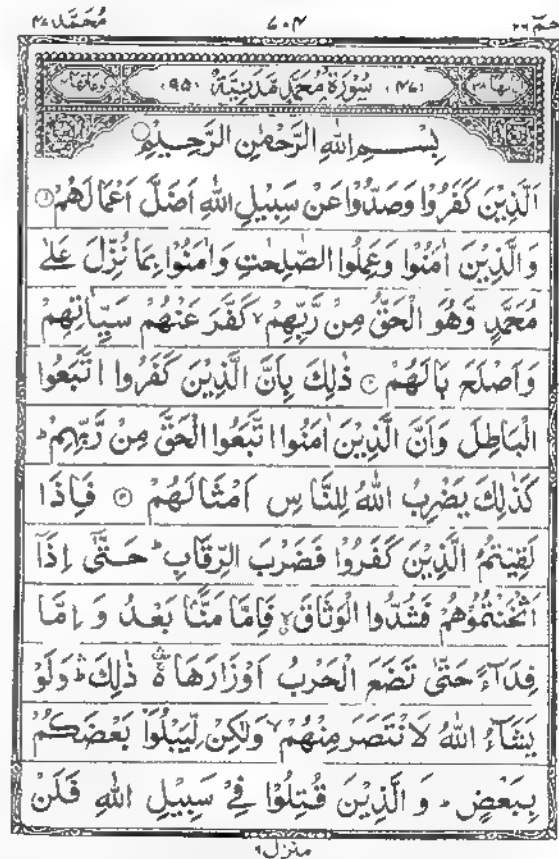 حٰمٓ ٢٦ ٧٠٤ مُحَمَّد ٤٧
(٤٧) سُوْرَةُ مُحَمَّدٍ مَّدَنِيَّةٌ (٩٥)
بِسْمِ اللهِ الرَّحْمٰنِ الرَّحِيْمِ
اَلَّذِيْنَ كَفَرُوْا وَصَدُّوْا عَنْ سَبِيْلِ اللهِ اَضَلَّ اَعْمَالَهُمْ ۝۱
وَالَّذِيْنَ اٰمَنُوْا وَعَمِلُوا الصّٰلِحٰتِ وَاٰمَنُوْا بِمَا نُزِّلَ عَلٰى
مُحَمَّدٍ وَّهُوَ الْحَقُّ مِنْ رَّبِّهِمْ ۙ كَفَّرَ عَنْهُمْ سَيِّاٰتِهِمْ
وَاَصْلَحَ بَالَهُمْ ۝۲ ذٰلِكَ بِاَنَّ الَّذِيْنَ كَفَرُوا اتَّبَعُوا
الْبَاطِلَ وَاَنَّ الَّذِيْنَ اٰمَنُوا اتَّبَعُوا الْحَقَّ مِنْ رَّبِّهِمْ ؕ
كَذٰلِكَ يَضْرِبُ اللهُ لِلنَّاسِ اَمْثَالَهُمْ ۝۳ فَاِذَا
لَقِيْتُمُ الَّذِيْنَ كَفَرُوْا فَضَرْبَ الرِّقَابِ ؕ حَتّٰى اِذَاۤ
اَثْخَنْتُمُوْهُمْ فَشُدُّوا الْوَثَاقَ ۙ فَاِمَّا مَنًّۢا بَعْدُ وَاِمَّا
فِدَآءً حَتّٰى تَضَعَ الْحَرْبُ اَوْزَارَهَا ۛ۬ ذٰلِكَ ۛؕ وَلَوْ
يَشَآءُ اللهُ لَانْتَصَرَ مِنْهُمْ ۙ وَلٰكِنْ لِّيَبْلُوَا۠ بَعْضَكُمْ
بِبَعْضٍ ؕ وَالَّذِيْنَ قُتِلُوْا فِيْ سَبِيْلِ اللهِ فَلَنْ
منزل ٦